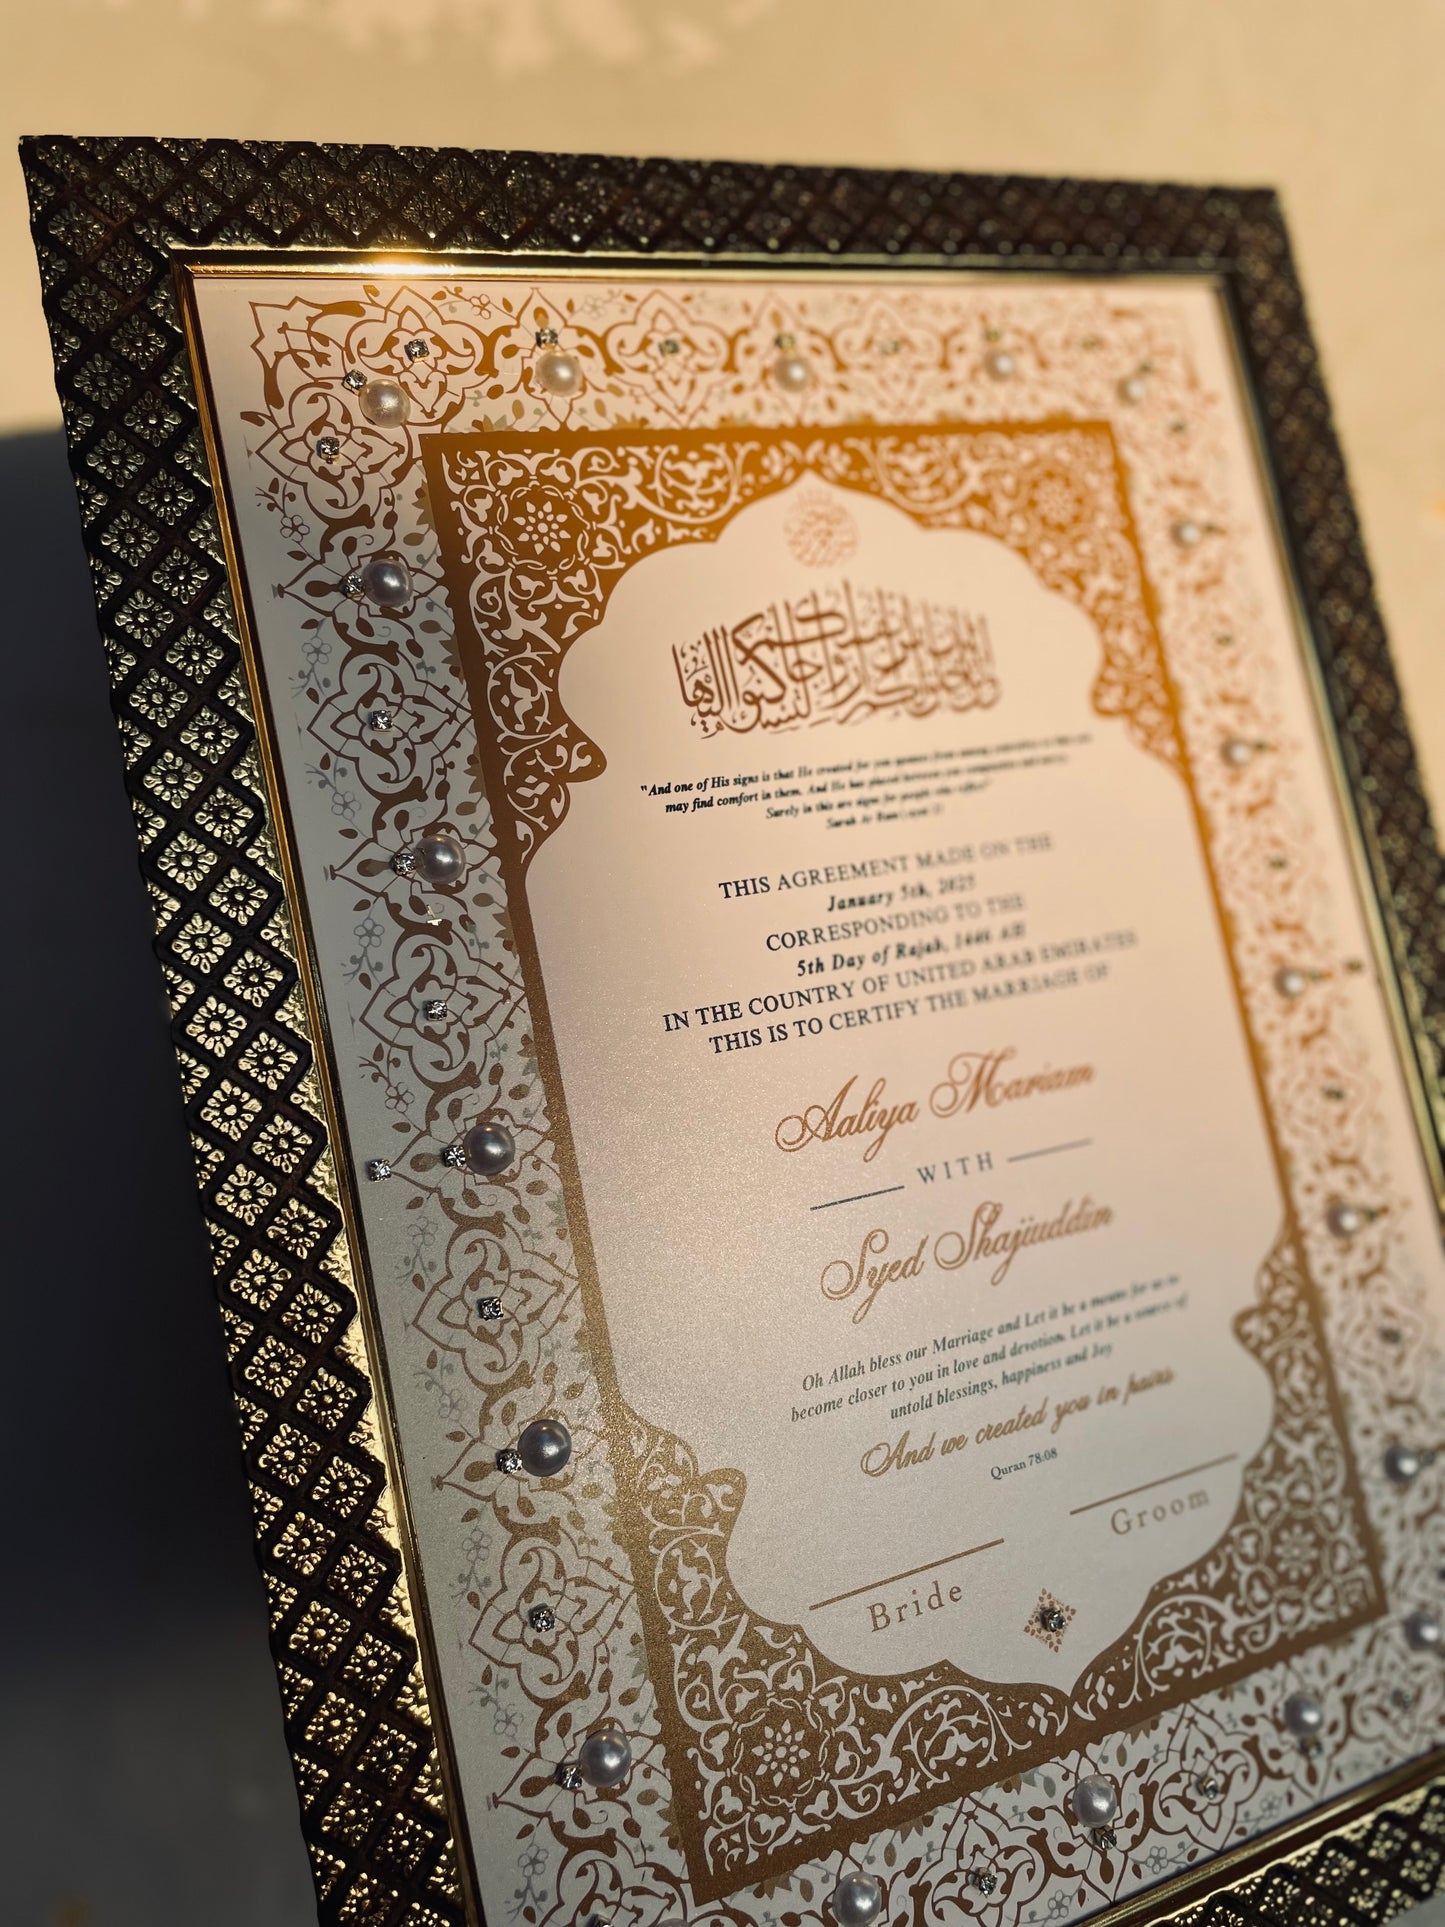 "And one of His signs is that He created for you spouses from among yourselves so that you
may find comfort in them. And He has placed between you compassion and mercy
Surely in this are signs for people who reflect"
Surah Ar Rum
THIS AGREEMENT MADE ON THE
January 5th, 2025
CORRESPONDING TO THE
5th Day of Rajab, 1446 AH
IN THE COUNTRY OF UNITED ARAB EMIRATES
THIS IS TO CERTIFY THE MARRIAGE OF
Aaliya Mariam
WITH
Syed Shajiuddin
Oh Allah bless our Marriage and Let it be a means for us to
become closer to you in love and devotion. Let it be a source of
untold blessings, happiness and Joy
And we created you in pairs
Quran 78:08
Groom
Bride